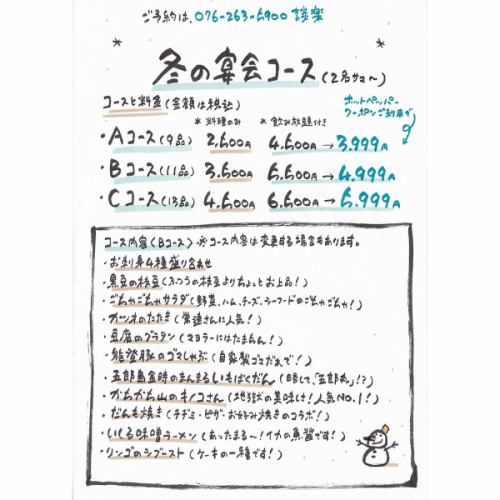 ご予約は、076-263-6900 談楽
冬の宴会コース(2名サマ〜)
コースと料金(金額は税込)
ホットペッパー
クーポンご利用で
*料理のみ *飲み放題付き
・Aコース(9品) 2.600円 4.600円→3.999円
・Bコース(11品) 3.600円 5.600円→4.999円
・Cコース(13品) 4.600円 6.600円→5.999円
コース内容<Bコース> ※コース内容は変更する場合もあります。
・お刺身4種盛り合わせ
・黒豆の枝豆(ふつうの枝豆よりちょっとお上品!)
・ごちゃごちゃサラダ(野菜、ハム、チーズ、シーフードのごちゃごちゃ!)
・カツオのたたき(常連さんに人気!)
・豆腐のグラタン(マヨラーにはたまらん!)
・能登豚のゴマしゃぶ(自家製ゴマだれで!)
・五郎島金時のまんまるいもばくだん(略して、「五郎丸」!?)
・かちかち山のキノコさん(地獄の美味しさ!人気No.1!)
・だんも焼き(チヂミ・ピザ・お好み焼きのコラボ!)
・いしる味噌ラーメン(あったまる〜!イカの魚醤です!)
・リンゴのシブースト(ケーキの一種です!)